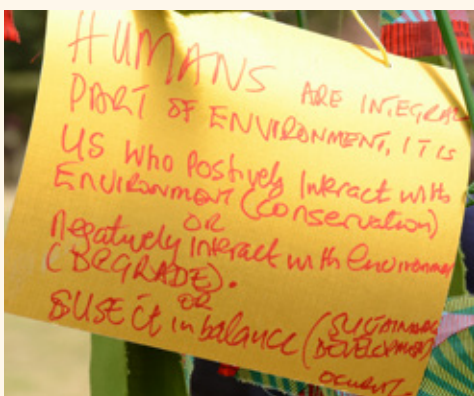 HUMANS ARE INTEGRAL
PART OF ENVIRONMENT, IT IS
US WHO Positively Interact with
ENVIRONMENT (Conservation)
OR
Negatively interact with Environment
(DEGRADE).
OR
USE it in balance (SUSTAINABLE
DEVELOPMENT)